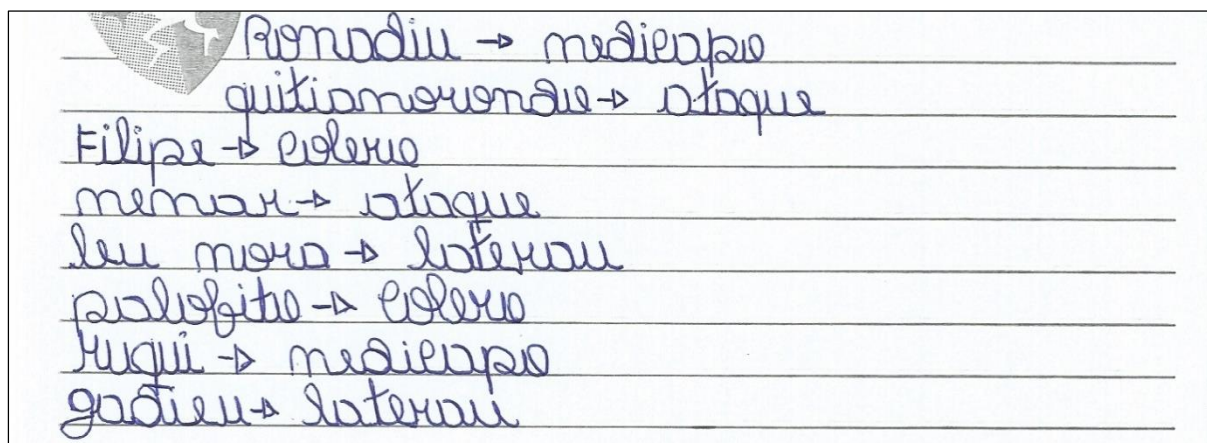 Ronadiu → medicapo
quitianorondo → ataque
Filipe → golero
nemar → ataque
leu mora → laterau
paliofito → golero
ruqui → medicapo
gadieu → laterau